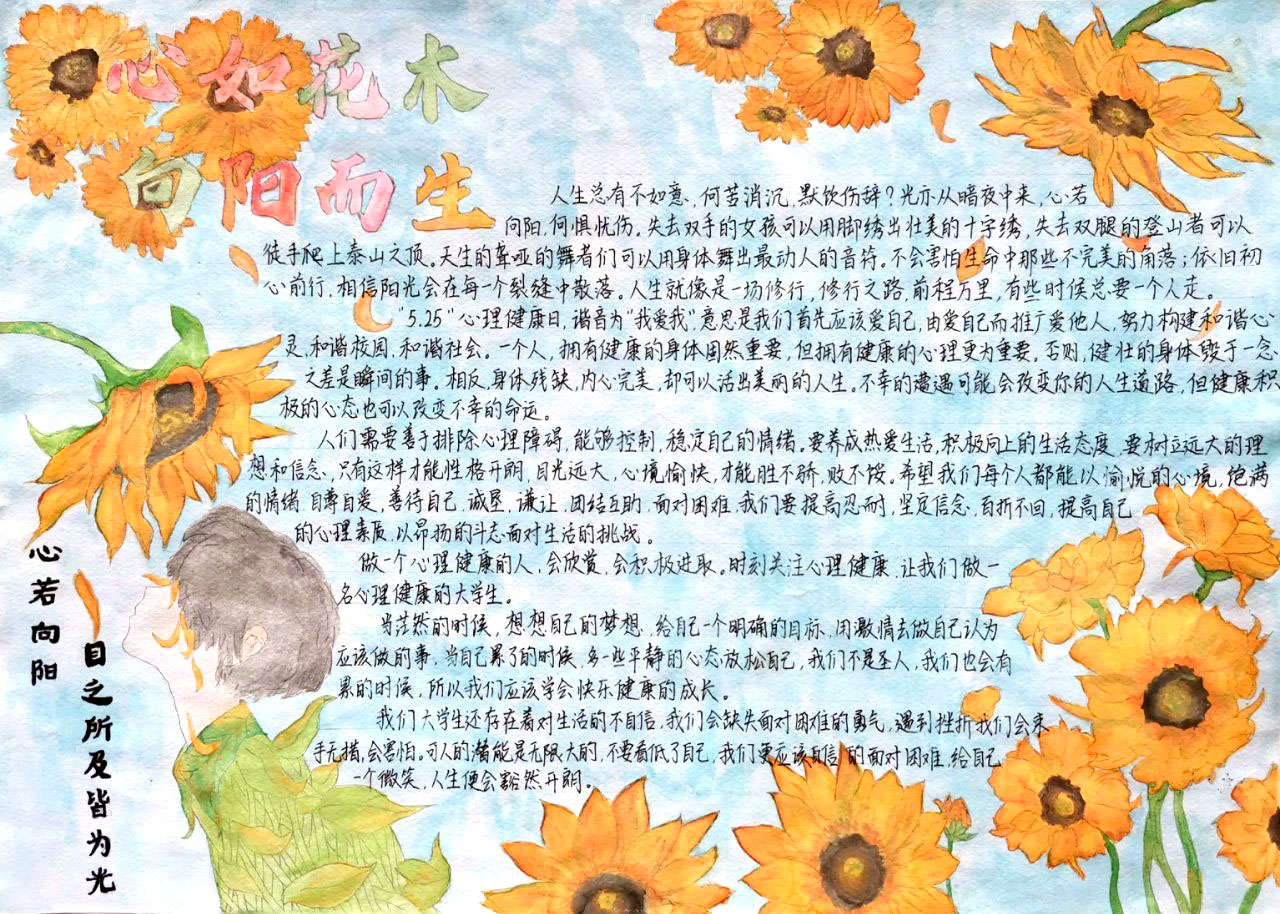 心如花木
向阳而生
人生总有不如意,何苦消沉,默饮伤辞?光亦从暗夜中来,心若
向阳,何惧忧伤。失去双手的女孩可以用脚绣出壮美的十字绣,失去双腿的登山者可以
徒手爬上泰山之顶。天生的聋哑的舞者们可以用身体舞出最动人的音符。不会害怕生命中那些不完美的角落;依旧初
心前行,相信阳光会在每一个裂缝中散落。人生就像是一场修行,修行之路,前程万里,有些时候总要一个人走。
"5.25"心理健康日,谐音为"我爱我",意思是我们首先应该爱自己,由爱自己而推广爱他人,努力构建和谐心
灵,和谐校园,和谐社会。一个人,拥有健康的身体固然重要,但拥有健康的心理更为重要,否则,健壮的身体毁于一念
之差是瞬间的事。相反,身体残缺,内心完美,却可以活出美丽的人生。不幸的遭遇可能会改变你的人生道路,但健康积
极的心态也可以改变不幸的命运。
人们需要善于排除心理障碍,能够控制,稳定自己的情绪。要养成热爱生活,积极向上的生活态度,要树立远大的理
想和信念,只有这样才能性格开朗,目光远大,心境愉快,才能胜不骄,败不馁。希望我们每个人都能以愉悦的心境,饱满
的情绪,自尊自爱,善待自己,诚恳,谦让,团结互助,面对困难,我们要提高忍耐,坚定信念,百折不回,提高自己
的心理素质,以昂扬的斗志面对生活的挑战。
做一个心理健康的人,会欣赏,会积极进取。时刻关注心理健康,让我们做一
名心理健康的大学生。
当茫然的时候,想想自己的梦想,给自己一个明确的目标,用激情去做自己认为
应该做的事,当自己累了的时候,多一些平静的心态放松自己,我们不是圣人,我们也会有
累的时候,所以我们应该学会快乐健康的成长。
我们大学生还存在着对生活的不自信,我们会缺失面对困难的勇气,遇到挫折我们会束
手无措,会害怕。可人的潜能是无限大的,不要看低了自己,我们更应该自信的面对困难,给自己
一个微笑,人生便会豁然开朗。
心若向阳
目之所及皆为光